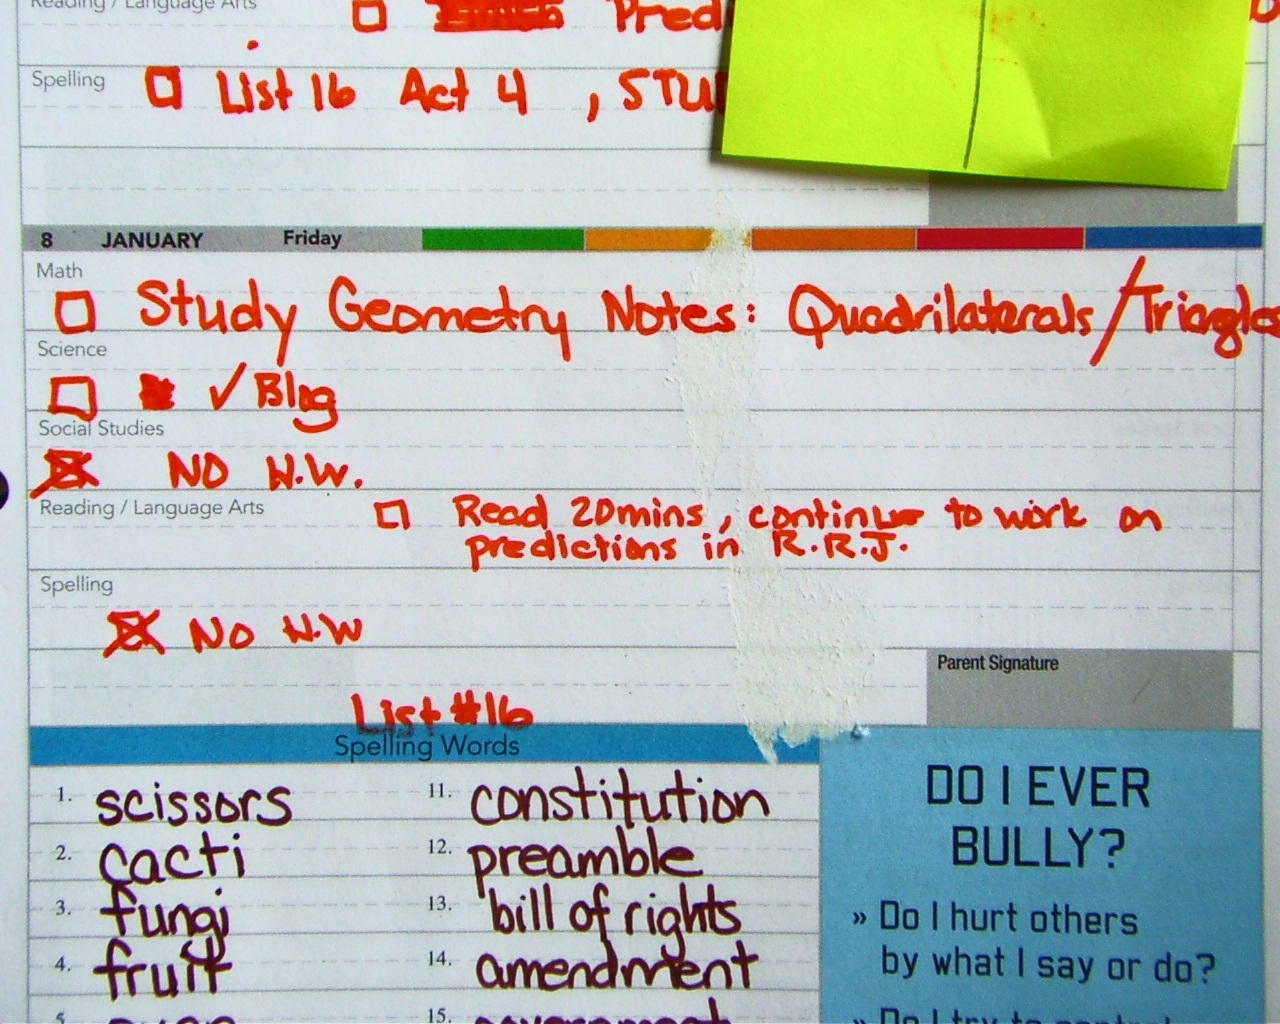 Reading / Language Arts
Pred
Spelling
List 16 Act 4 , STU
8 JANUARY Friday
Math
Study Geometry Notes: Quadrilaterals/Triangles
Science
✓ Blog
Social Studies
NO H.W.
Reading / Language Arts
Read 20mins, continue to work on
predictions in R.R.J.
Spelling
NO H.W
Parent Signature
List #16
Spelling Words
1. scissors
2. cacti
3. fungi
4. fruit
5.
11. constitution
12. preamble
13. bill of rights
14. amendment
15. government
DO I EVER
BULLY?
» Do I hurt others
by what I say or do?
» Do I try to control